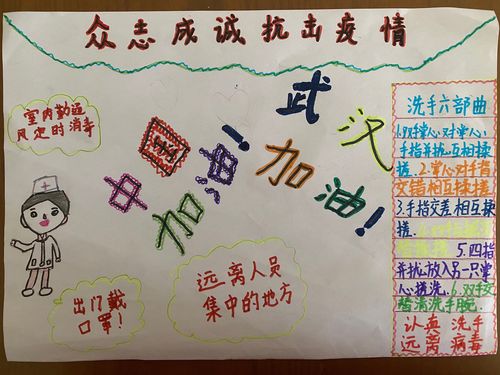 众志成诚抗击疫情
室内勤通
风定时消毒
中国加油！
武汉加油！
出门戴
口罩！
远离人员
集中的地方
洗手六部曲
手指并拢互相揉
搓.2.掌心对手背
交错相互揉搓.
3.手指交差相互揉
搓.
5.四指
并拢放入另一只掌
心揉洗.6.双手交
替清洗手腕.
认真洗手
远离病毒